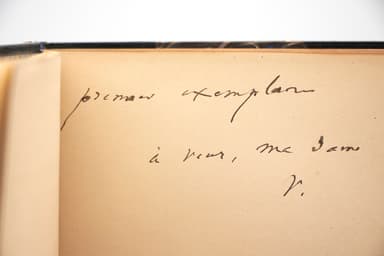 premier exemplaire
à vous, ma Dame
V.